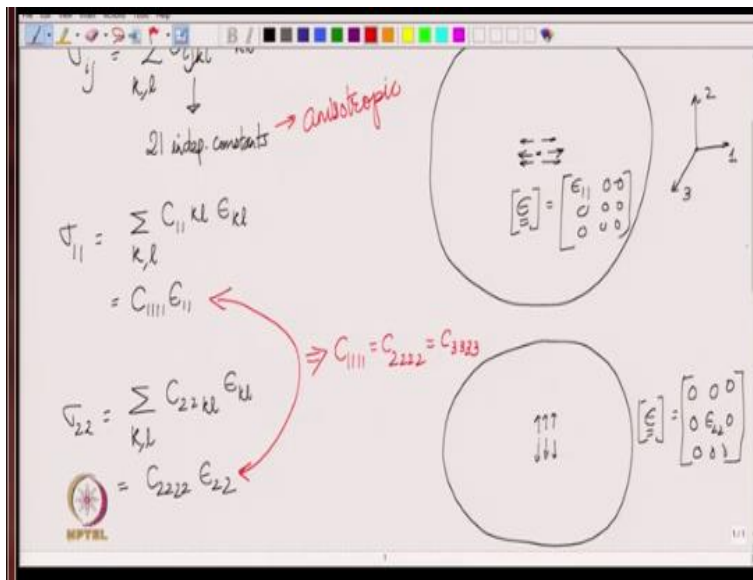 σ_ij = Σ_{k,l} C_ijkl ϵ_kl
21 indep. constants → anisotropic
σ_11 = Σ_{k,l} C_11kl ϵ_kl
= C_1111 ϵ_11
⇒ C_1111 = C_2222 = C_3333
σ_22 = Σ_{k,l} C_22kl ϵ_kl
= C_2222 ϵ_22
[ϵ] = [ϵ_11 0 0
0 0 0
0 0 0]
2
1
3
[ϵ] = [0 0 0
0 ϵ_22 0
0 0 0]
NPTEL
1/1